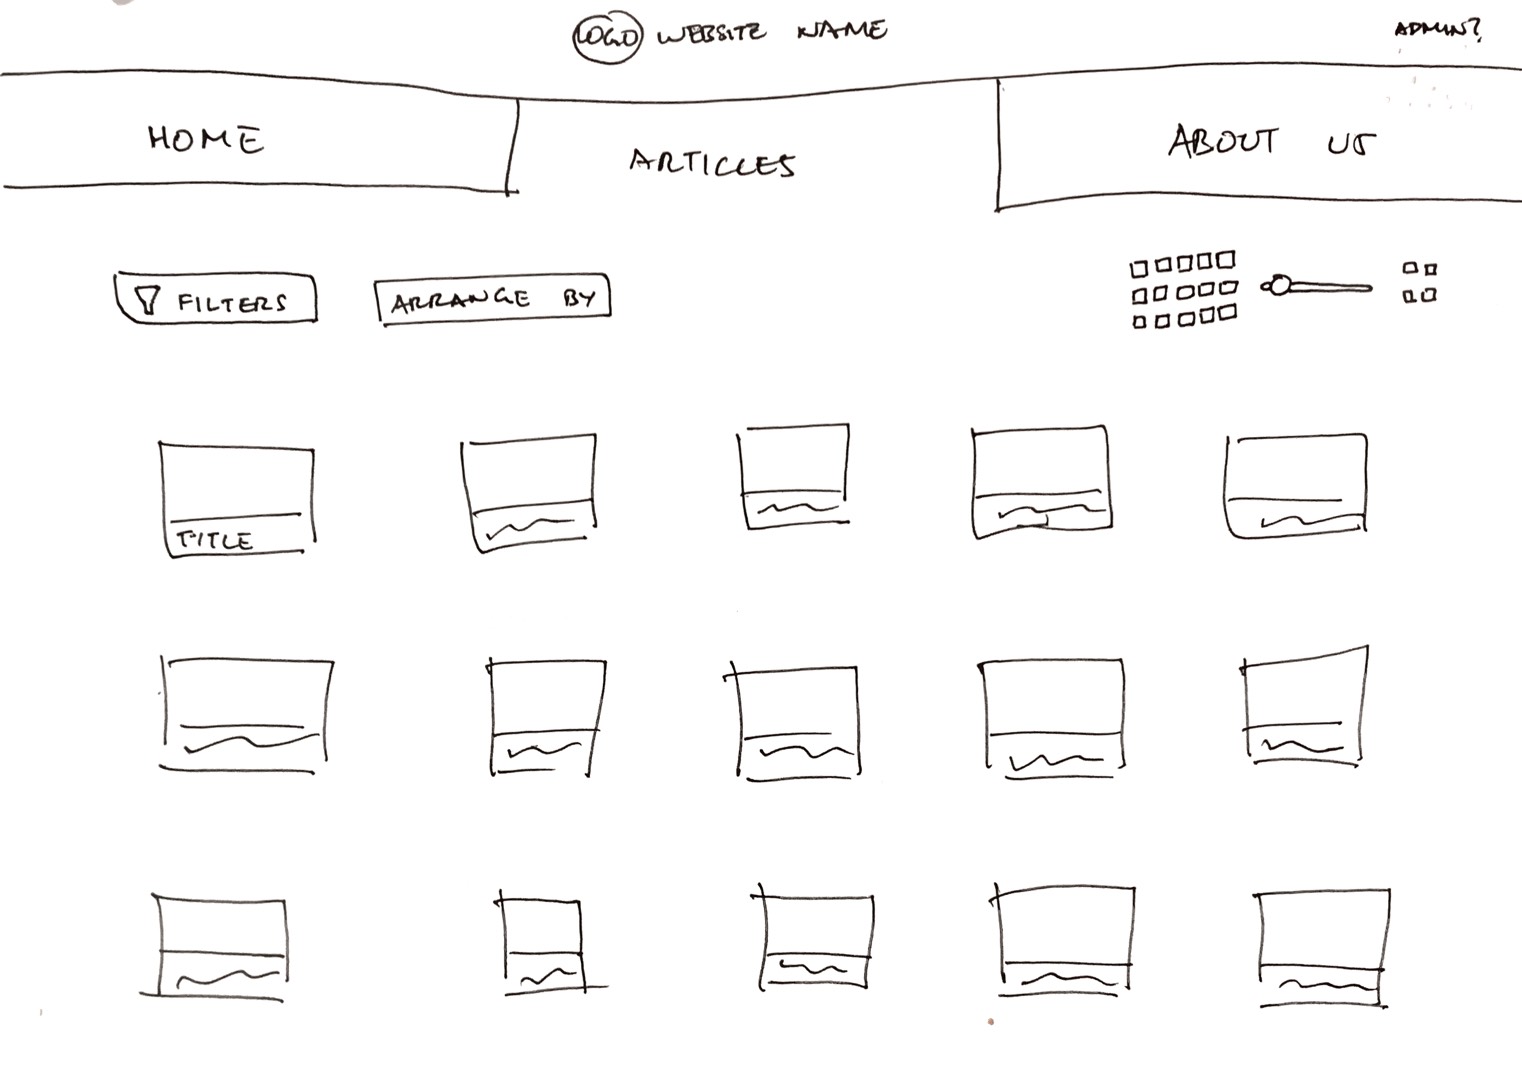 LOGO WEBSITE NAME
ADMIN?
HOME
ARTICLES
ABOUT US
FILTERS
ARRANGE BY
TITLE